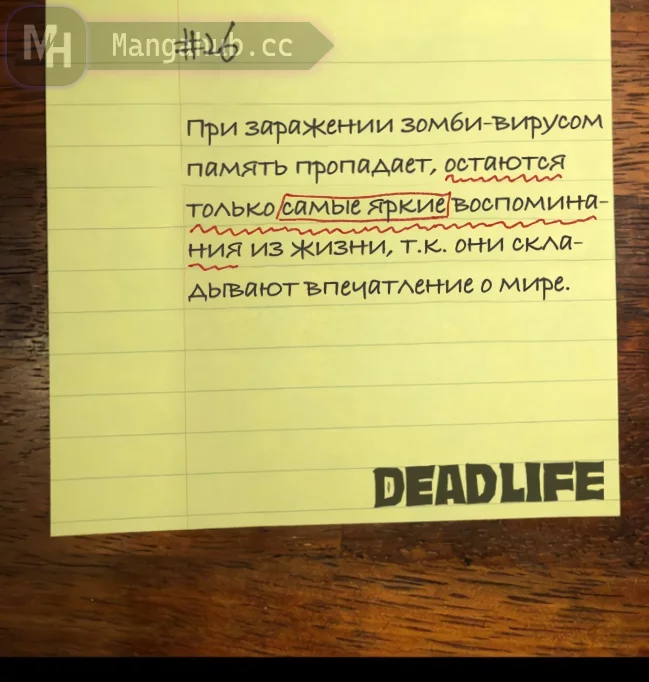 MH Mangahub.cc
#26
При заражении зомби-вирусом
память пропадает, остаются
только самые яркие воспомина-
ния из жизни, т.к. они скла-
дывают впечатление о мире.
DEADLIFE